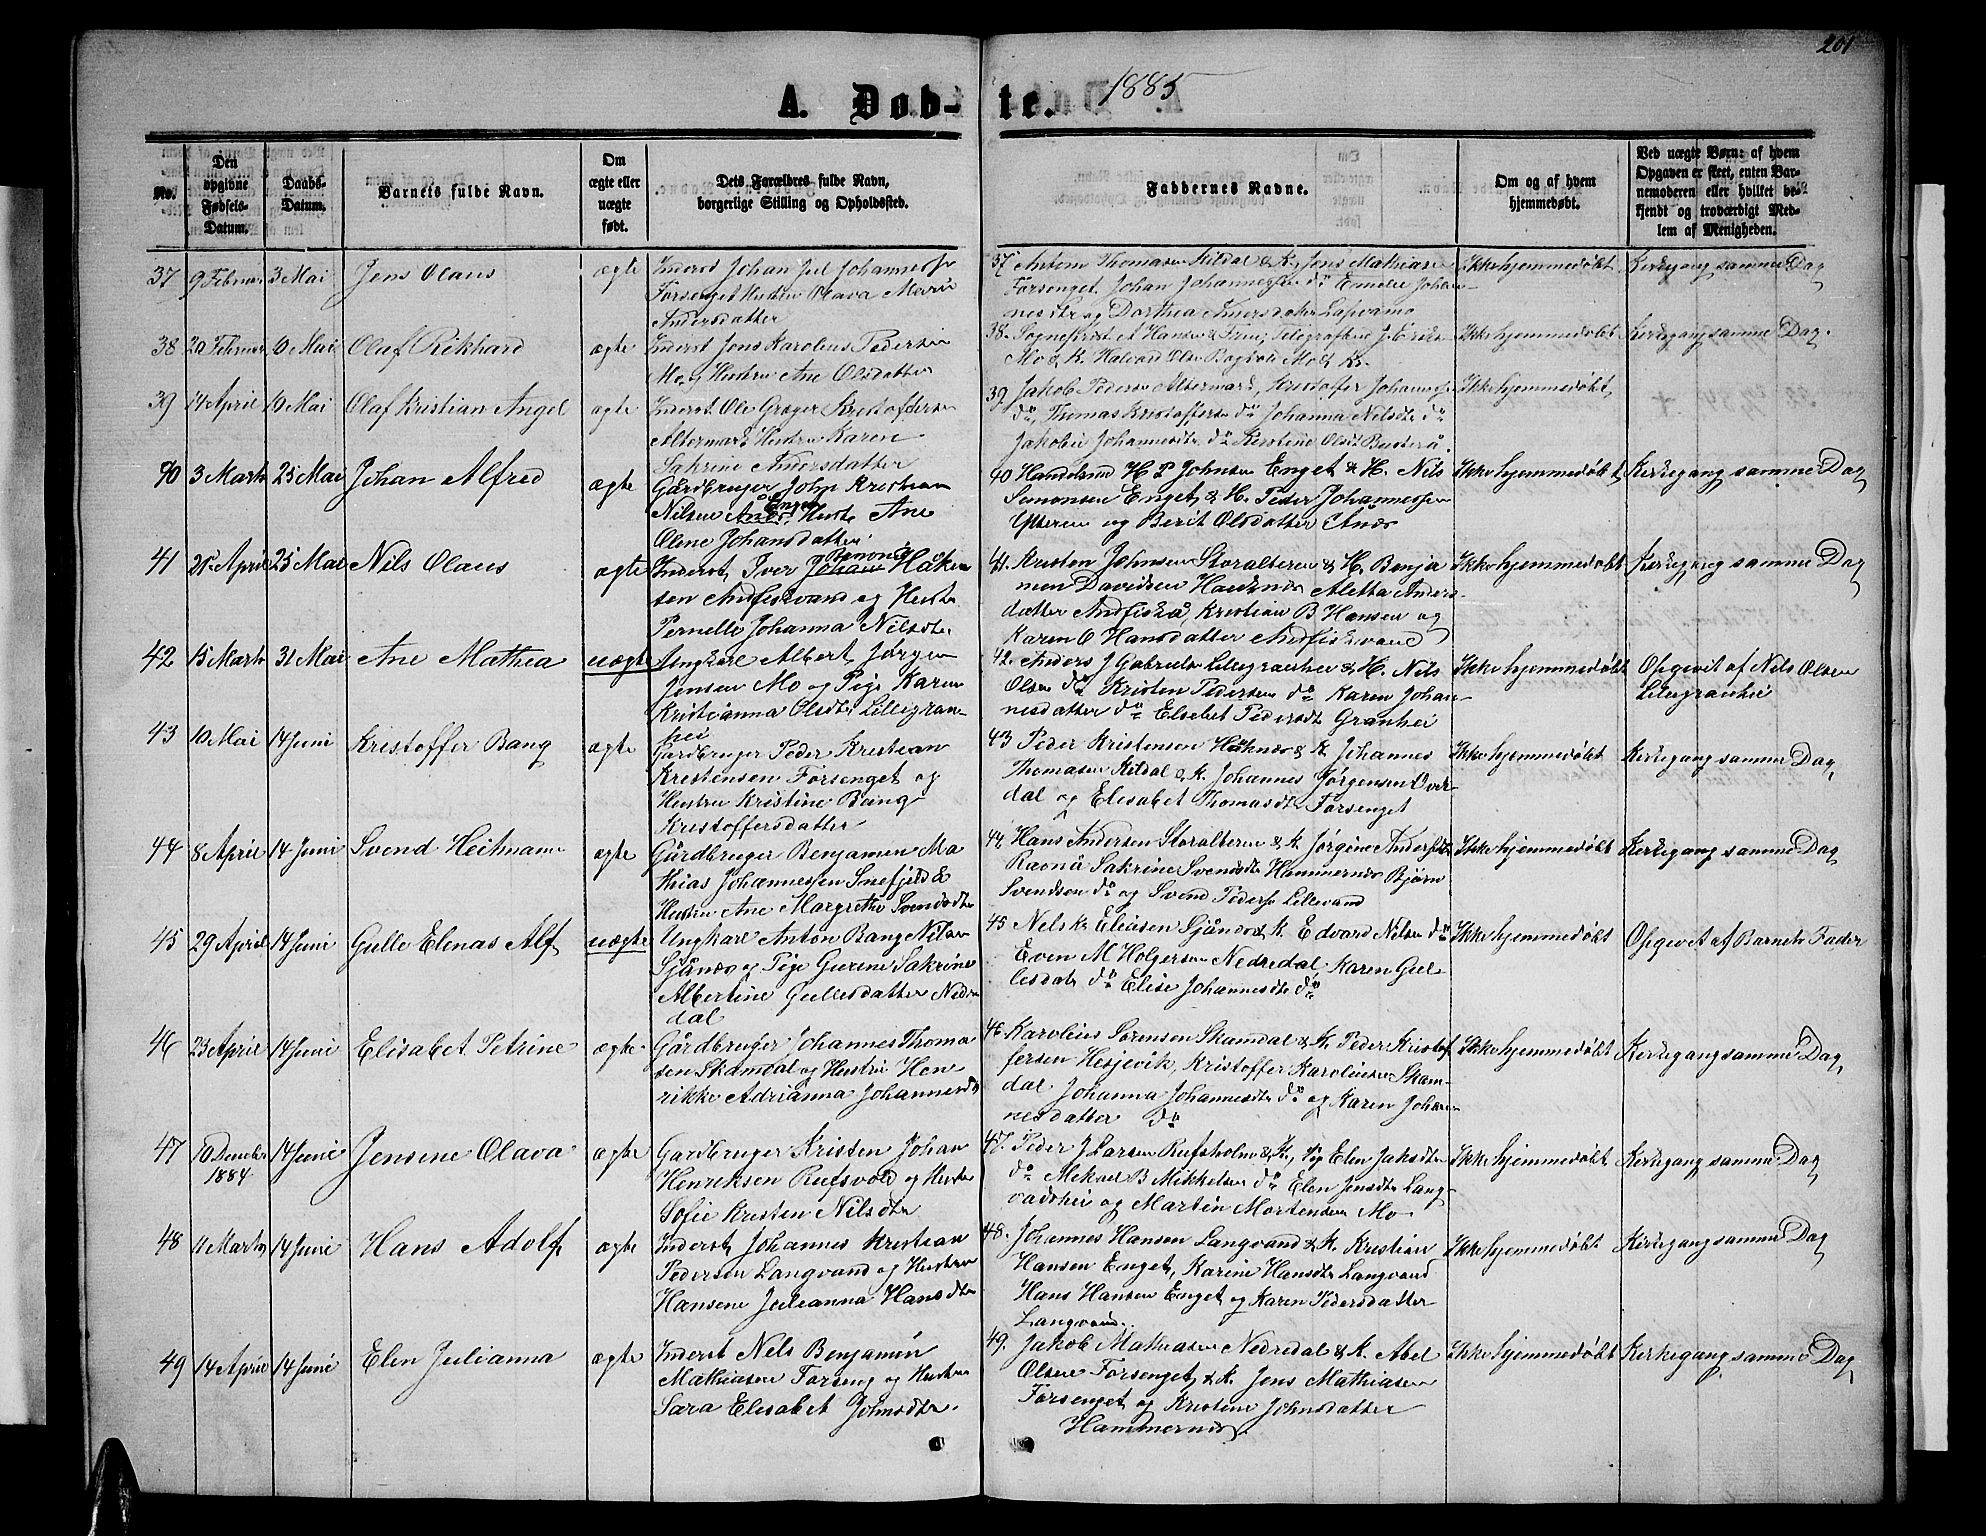 201
A. Døb-te. 1885
No.
Den opgivne Fødsels-Datum.
Daabs-Datum.
Barnets fulde Navn.
Om ægte eller uægte født.
Dets Forældres fulde Navn, borgerlige Stilling og Opholdssted.
Faddernes Navne.
Om og af hvem hjemmedøbt.
Ved uægte Børn: af hvem Opgaven er skeet, enten Barnemoderen eller hvilket bekjendt og troværdigt Medlem af Menigheden.
37 9 Februar 3 Mai Jens Olaus ægte
Inderst Johan Jul Johanness
Forsenget Hustru Olava Marie
Andersdatter
37 Antom Thomasen Kildal & K, Jens Mathiasen
Forsenget, Johan Johannessen do Emelie Johan-
nesdtr og Dorthea Andersdatter
Ikke hjemmedøbt Kirkegang samme Dag
38 20 Februar 10 Mai Olaf Rikhard ægte
Inderst Jens Karolius Pedersen
Mo og Hustru Ane Olsdatter
38. Sogneprest A Hansen & Frue, Telegrafken
Mo & K. Halvard Olsen Mo & K.
Ikke hjemmedøbt Kirkegang samme Dag.
39 14 April 10 Mai Olaf Kristian Angel ægte
Inderst Ole Greger Kristoffersen
Altermark Hustru Karen
Sakrine Andersdatter
39 Jakob Pedersen Altermark, Kristofer Johannes
do, Thomas Kristoffersen do Johanna Nilsdtr do
Jakobie Johannesdtr do Kirstine Olsdt
Ikke hjemmedøbt,
40 3 Marts 25 Mai Johan Alfred ægte
Gårdbruger John Kristian
Enget
Nilsen Hustr Ane
Oline Johansdatter
40 Handelsmd H P Johnsen Enget & H. Nils
Simonsen Enget & H. Peder Johannessen
Ytteren og Berit OlsdatterÅnæs
Ikke hjemmedøbt, Kirkegang samme Dag
41 21 April 25 Mai Nils Olaus ægte
Benoni
Inderst, Iver Johan Håken
sen Andfiskvand og Hustr
Pernelle Johanna Nilsdtr
41. Kristen Johnsen Storalteren & H. Benja
men Davidsen Hauknæs Aletta Anders-
datter Andfiskå, Kristian B Hansen og
Karen O Hansdatter Andfiskvand
Ikke hjemmedøbt Kirkegang samme Dag
42 15 Marts 31 Mai Ane Mathea uægte
Ungkarl Albert Jørgen
Jensen Mo og Pige Karen
Kristianna Olsdtr Lillegran-
hei
42. Anders J Gabrielsen Lillegranhei & H. Nils
Olsen do Kristen Pedersen do Karen Johan-
nesdatter do Elsebet Pedersdt Granhei
Ikke hjemmedøbt Opgevit af Nils Olsen
Lillegranhei
43 10 Mai 14 Juni Kristoffer Bang ægte
Gardbruger Peder Kristian
Kristensen Forsenget og
Hustru Kristine Bang
Kristoffersdatter
43 Peder Kristensen Håknæs & K. Johannes
Thomasen Kildal & K. Johannes Jørgensen Over-
dal og Elisabet Thomasdtr Forsenget
Ikke hjemmedøbt Kirkegang samme Dag,
44 8 April 14 Juni Svend Heitmann ægte
Gårdbruger Benjamin Ma
thias Johannessen Snefjeld &
Hustru Ane Margrethe Svendsdtr
44, Hans Andersen Storalteren & K Jørgine Andersdtr
Ravnå Sakrine Svendsdtr Hammernæs Bjørn
Svendsen do og Svend Peders Lillevand
Ikke hjemmedøbt Kirkegang samme Dag
45 29 April 14 Juni Gulle Elenas Alf uægte
Ungkarl Anton Bang Nilsen
Sjånæs og Pige Gurine Sakrine
Albertine Gullesdatter Nedre
dal
45 Nels K Eliasen Sjånæs & K. Edvard Nilsen do
Even M Holgersen Nedredal, Karen Gul-
lesdatr do Elise Johannesdtr do
Ikke hjemmedøbt Opgevet af Barnets Fader
46 23 April 14 Juni Elisabet Petrine ægte
Gårdbruger Johannes Thoma
sen Skamdal og Hustru Hen
rikke Adrianna Johannesdtr
46. Karolius Sørensen Skamdal & K. Peder Kristof
fersen Hesjevik, Kristoffer Karoliusen Skam-
dal Johanna Johannesdtr do og Karen Johan-
nesdatter do
Ikke hjemmedøbt Kirkegang samme Dag,
47 10 Decmbr 1884 14 Juni Jensine Olava ægte
Gardbruger Kristen Johan
Henriksen Rufsvold og Hustru
Sofie Kristen Nilsdtr
47. Peder J Larsen Rufsholm & K, Pig Elen Jakobdtr
do Mekael B Mikkelsen do Elen Jensdtr Lang-
vadshei og Martin Mortensen Mo
Ikke hjemmedøbt Kirkegang samme Dag
48 11 Marts 14 Juni Hans Adolf ægte
Inderst, Johannes Kristian
Pedersen Langvand og Hustru
Hansine Julianna Hansdtr
48. Johannes Hansen Langvand & K. Kristian
Hansen Enget, Karine Hansdtr Langvand
Hans Hansen Enget og Karen Pedersdatter
Langvand.
Ikke hjemmedøbt Kirkegang samme Dag
49 14 April 14 Juni Elen Julianna ægte
Inderst Nels Benjamin
Mathiasen Forseng og Hustru
Sara Elisabet Johnsdtr.
49. Jakob Mathiasen Nedredal & K. Abel
Olsen Forsenget & K. Jens Mathiasen
Forsenget og Kristine Johnsdatter
Hammernæs.
Ikke hjemmedøbt Kirkegang samme Dag